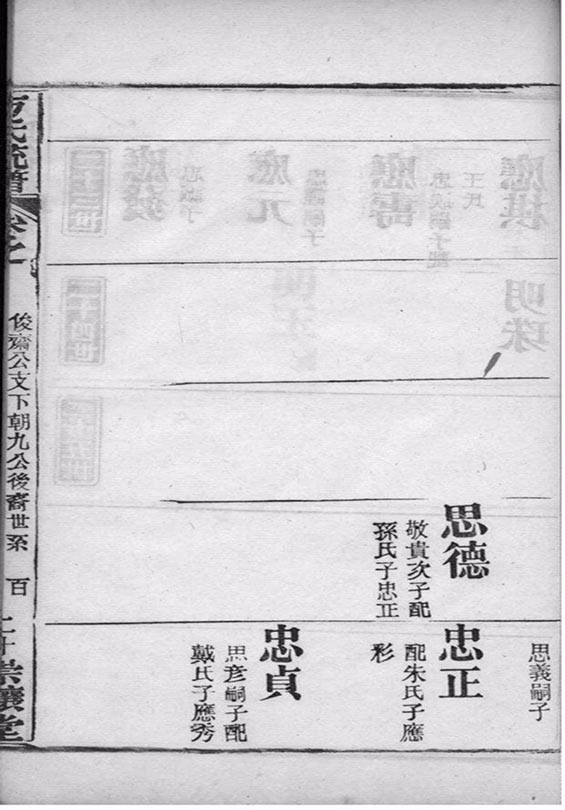 思德
敬貴次子配
孫氏子忠正
思義嗣子
忠正
配朱氏子應
彩
忠貞
思彦嗣子配
戴氏子應秀
方氏統譜
俊齋公支下朝九公後裔世系
百
二十
崇讓堂